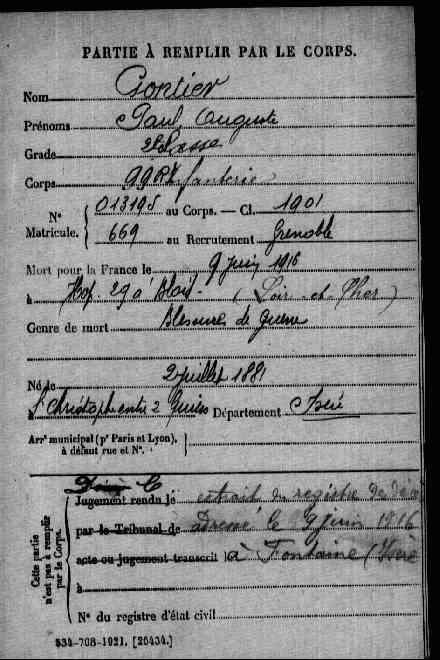 PARTIE À REMPLIR PAR LE CORPS.
Nom Gontier
Prénoms Paul Auguste
Grade 2e Classe
Corps 99 RI fanterie
N° Matricule. 013195 au Corps. — Cl. 1901
669 au Recrutement Grenoble
Mort pour la France le 9 juin 1916
à Hop. 29 à Blois - (Loir-et-Cher)
Genre de mort Blessures de guerre
Né le 2 juillet 1881
St Christophe entre 2 Guiers Département Isère
Arr' municipal (p' Paris et Lyon), à défaut rue et N°.
Cette partie n'est pas à remplir par le Corps.
Jugement rendu le extrait du registre de décès
par le Tribunal de adressé le 9 juin 1916
acte ou jugement transcrit le à Fontaine (Isère
à
N° du registre d'état civil
534-708-1921. [26434.]